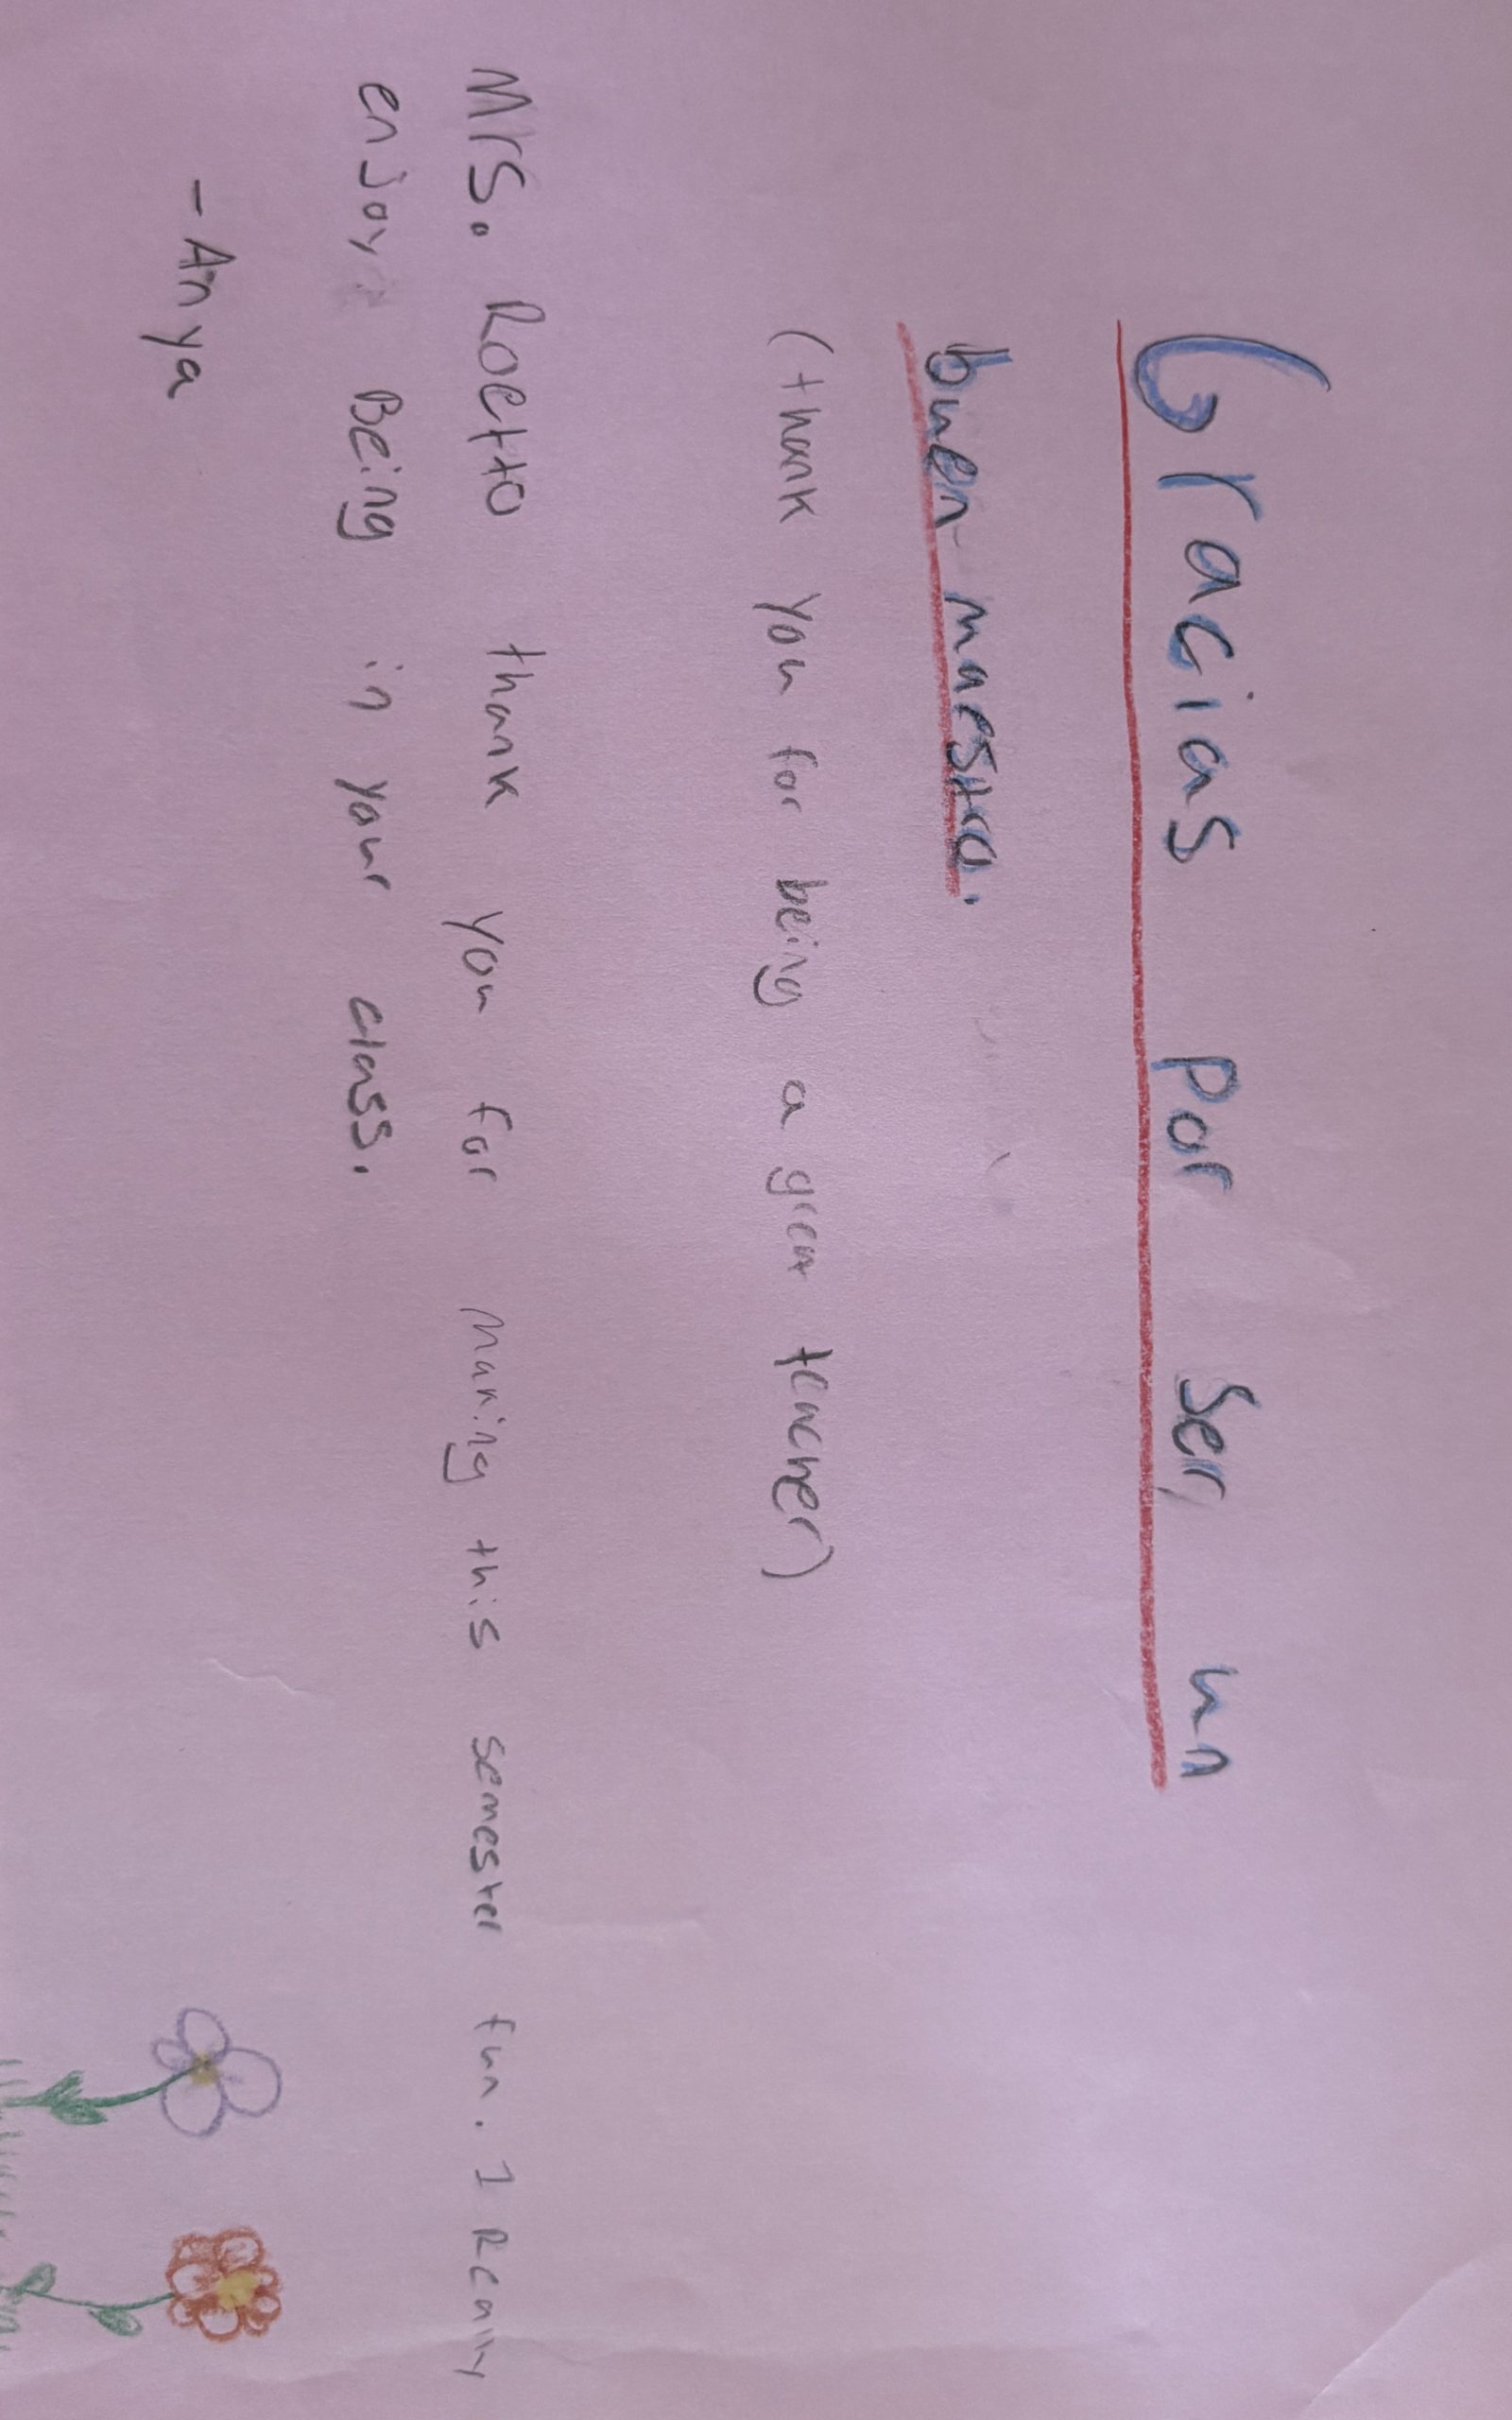 Gracias por ser un
buen maestro.
(thank you for being a great teacher)
Mrs. Roetto thank you for making this semester fun. I Really
enjoy Being in your class.
-Anya